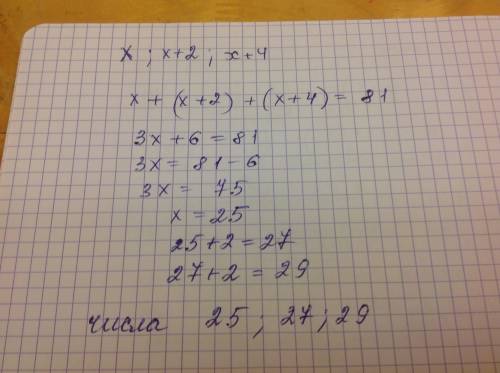 x ; x+2 ; x+4
x + (x+2) + (x+4) = 81
3x + 6 = 81
3x = 81 - 6
3x = 75
x = 25
25+2 = 27
27+2 = 29
числа 25 ; 27 ; 29